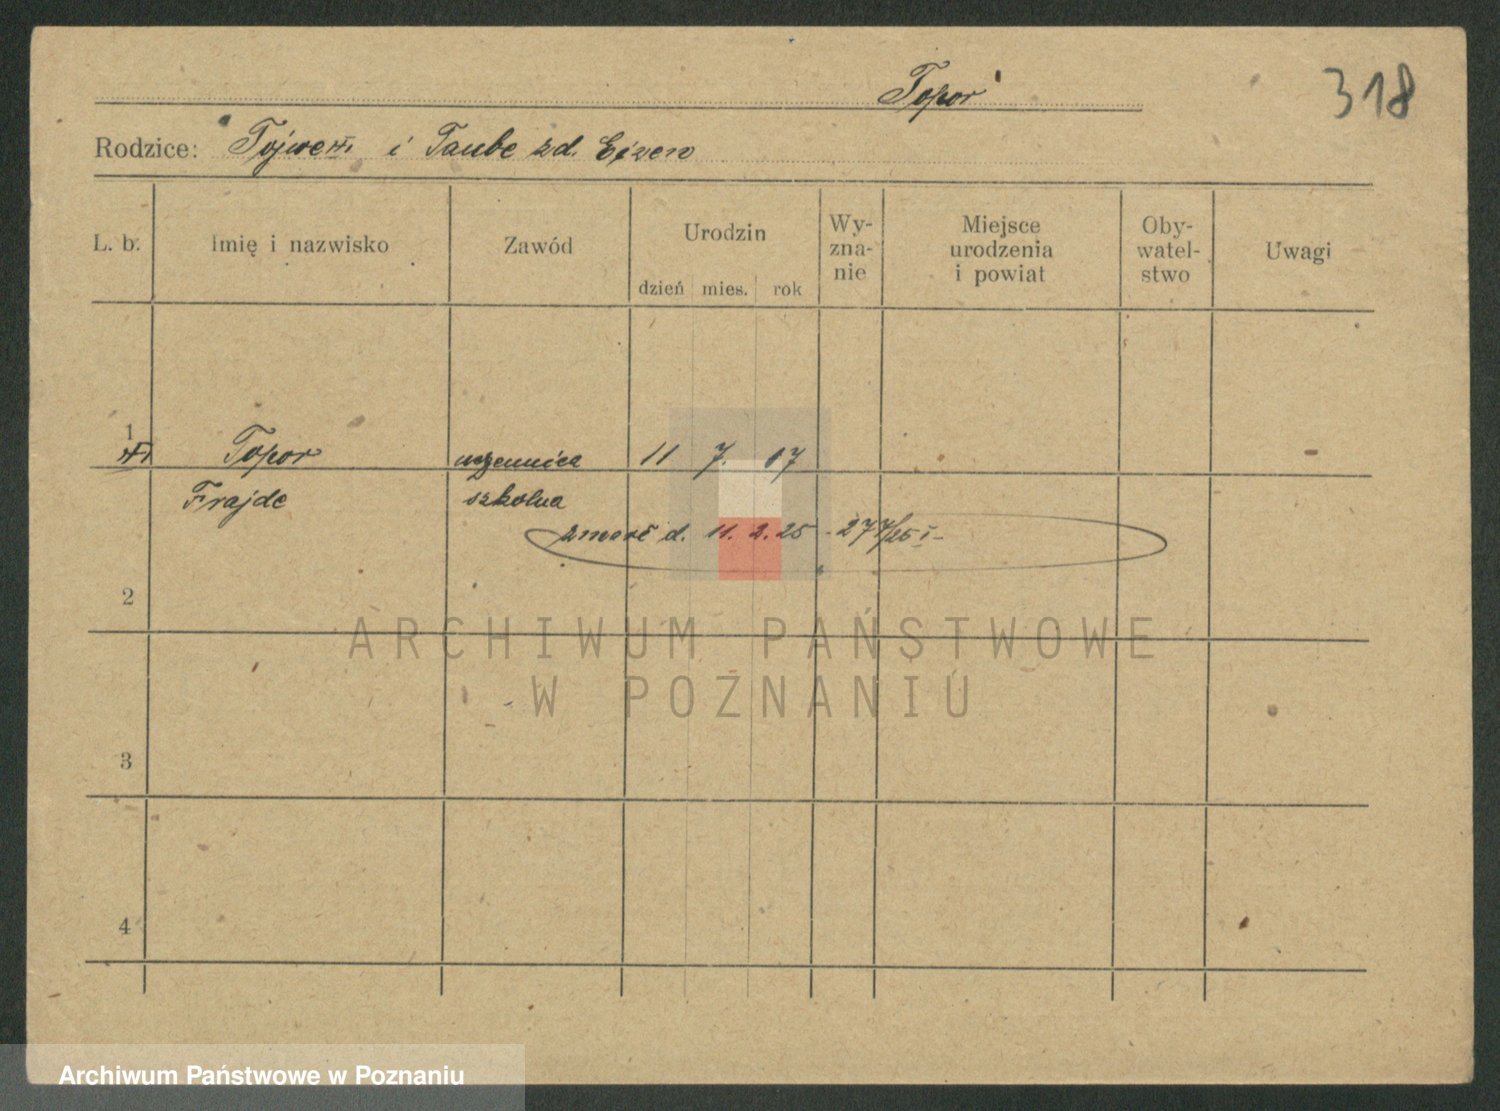 Topor
318
Rodzice: i Taube zd. Eizen
L. b. Imię i nazwisko Zawód Urodzin dzień mies. rok Wy-zna-nie Miejsce urodzenia i powiat Oby-watel-stwo Uwagi
1 Topor uczennica 11 7. 17
Frajde szkolna
zmarł d. 11. 2. 25 - 277/25 I-
2
3
4
ARCHIWUM PAŃSTWOWE
W POZNANIU
Archiwum Państwowe w Poznaniu